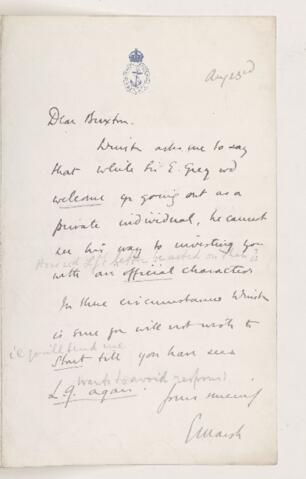 Aug 23rd
Dear Buxton.
Winston asks me to say
that while Sir E. Grey wd
welcome yr going out as a
private individual, he cannot
see his way to investing you
with an official character.
In these circumstances Winston
is sure you will not wish to
i.e. you'll send me
Start till you have seen
wants to avoid respons:
L.G. again.
Yours sincerely
EMarsh